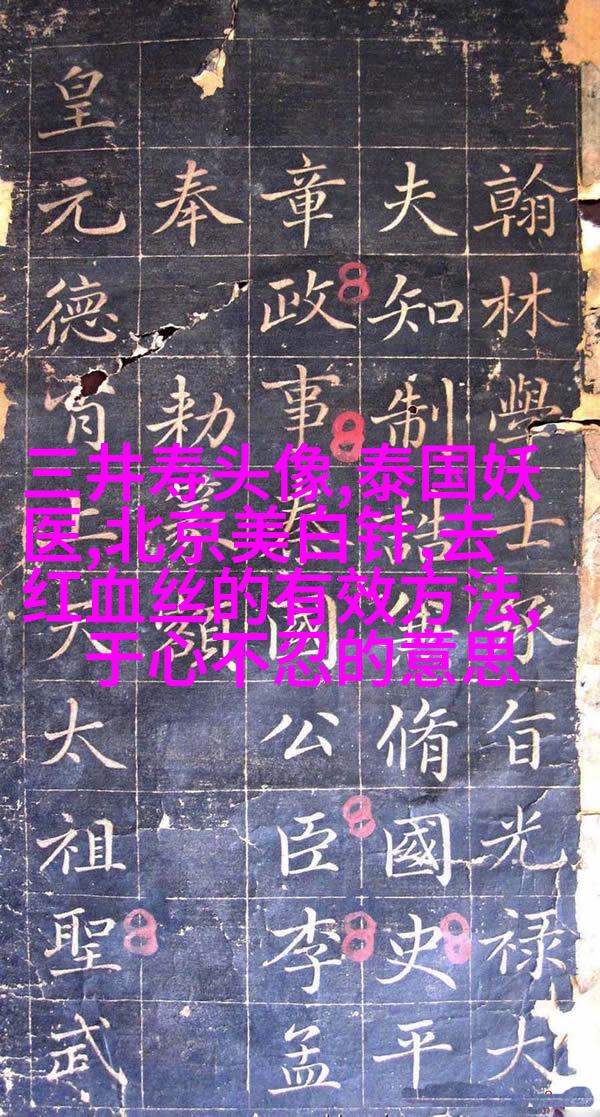 翰林學士承旨光禄大
夫知制誥兼脩國史平
章政事國公臣李孟
奉勅篆額
皇元德天太祖聖武
三井寿头像,泰国妖
医,北京美白针,去
红血丝的有效方法,
于心不忍的意思